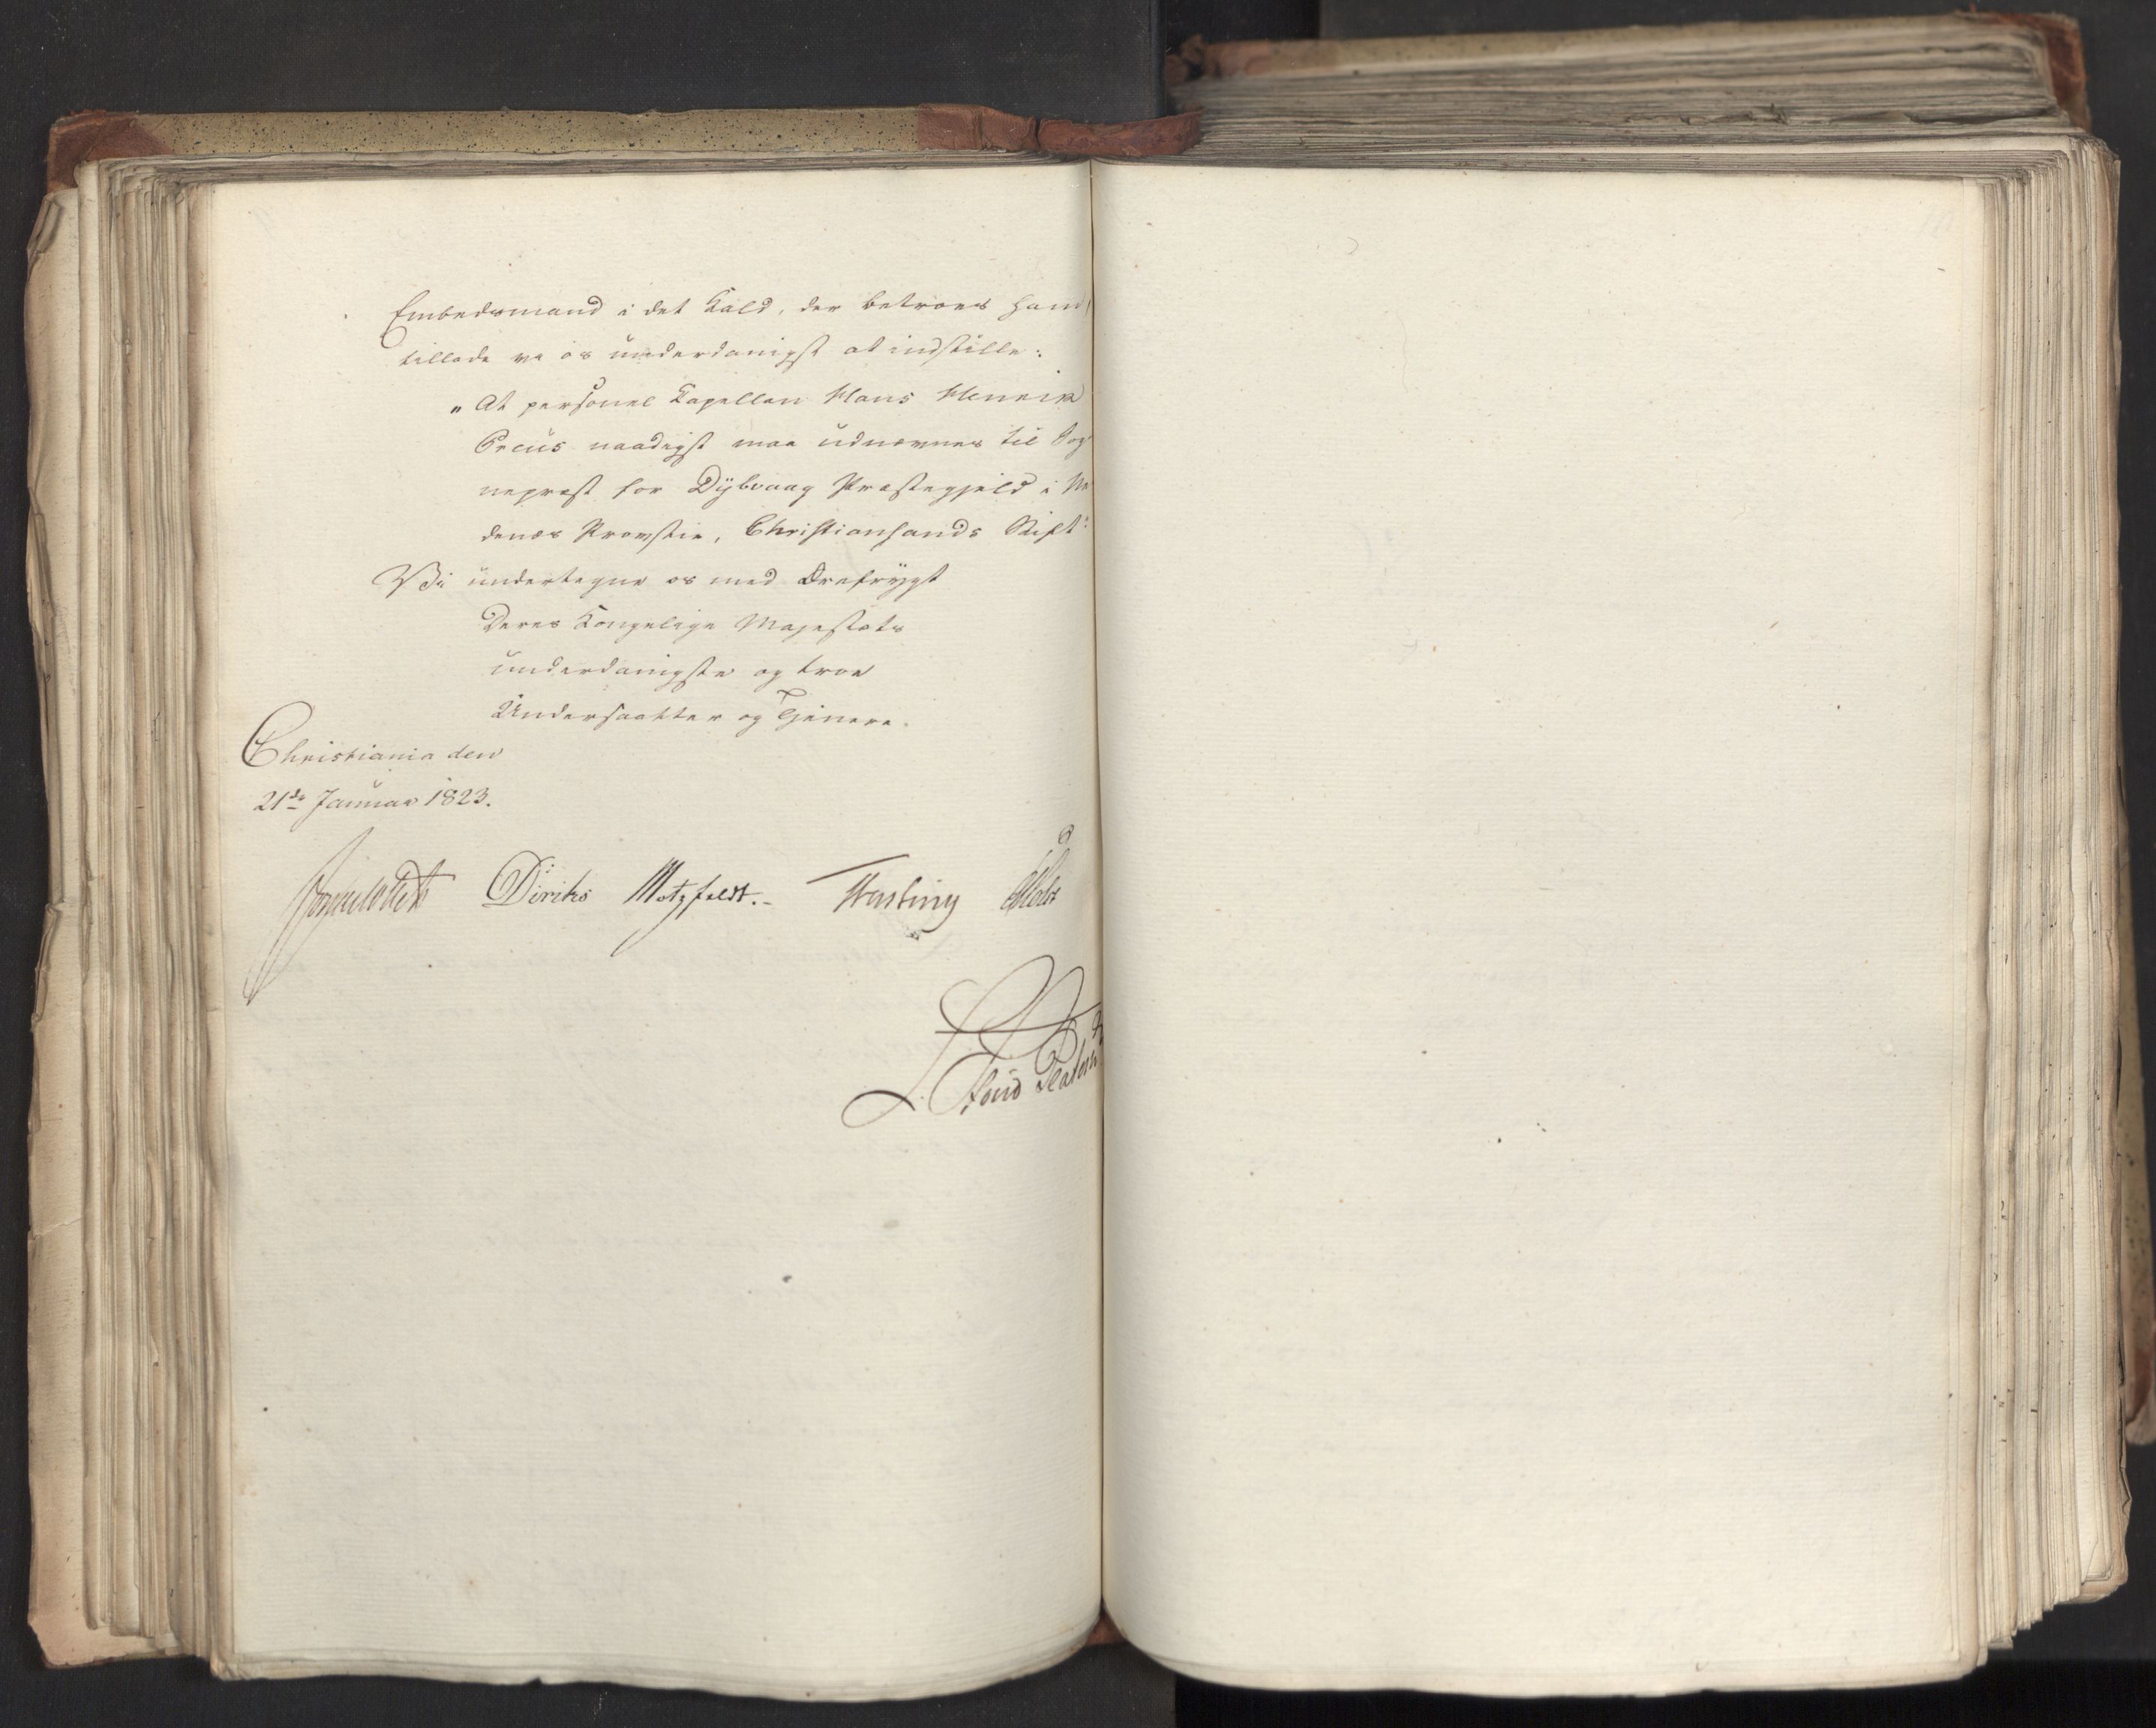 Embedsmand i det Kald, der betroes ham
tillade vi os underdanigst at indstille:
"At personel Kapellan Hans Henrik
naadigst maa udnævnes til Sog
nepræst for Dybvaag Præstegjeld i Ne
denæs Provstie, Christiansands Stift"
Vi undertegne os med Ærefrygt
Deres Kongelige Majestæts
underdanigste og troe
Undersaatter og Tjenere.
Christiania den
21de Januar 1823.
Sommerhielm Diriks Motzfeldt. Fasting Holst